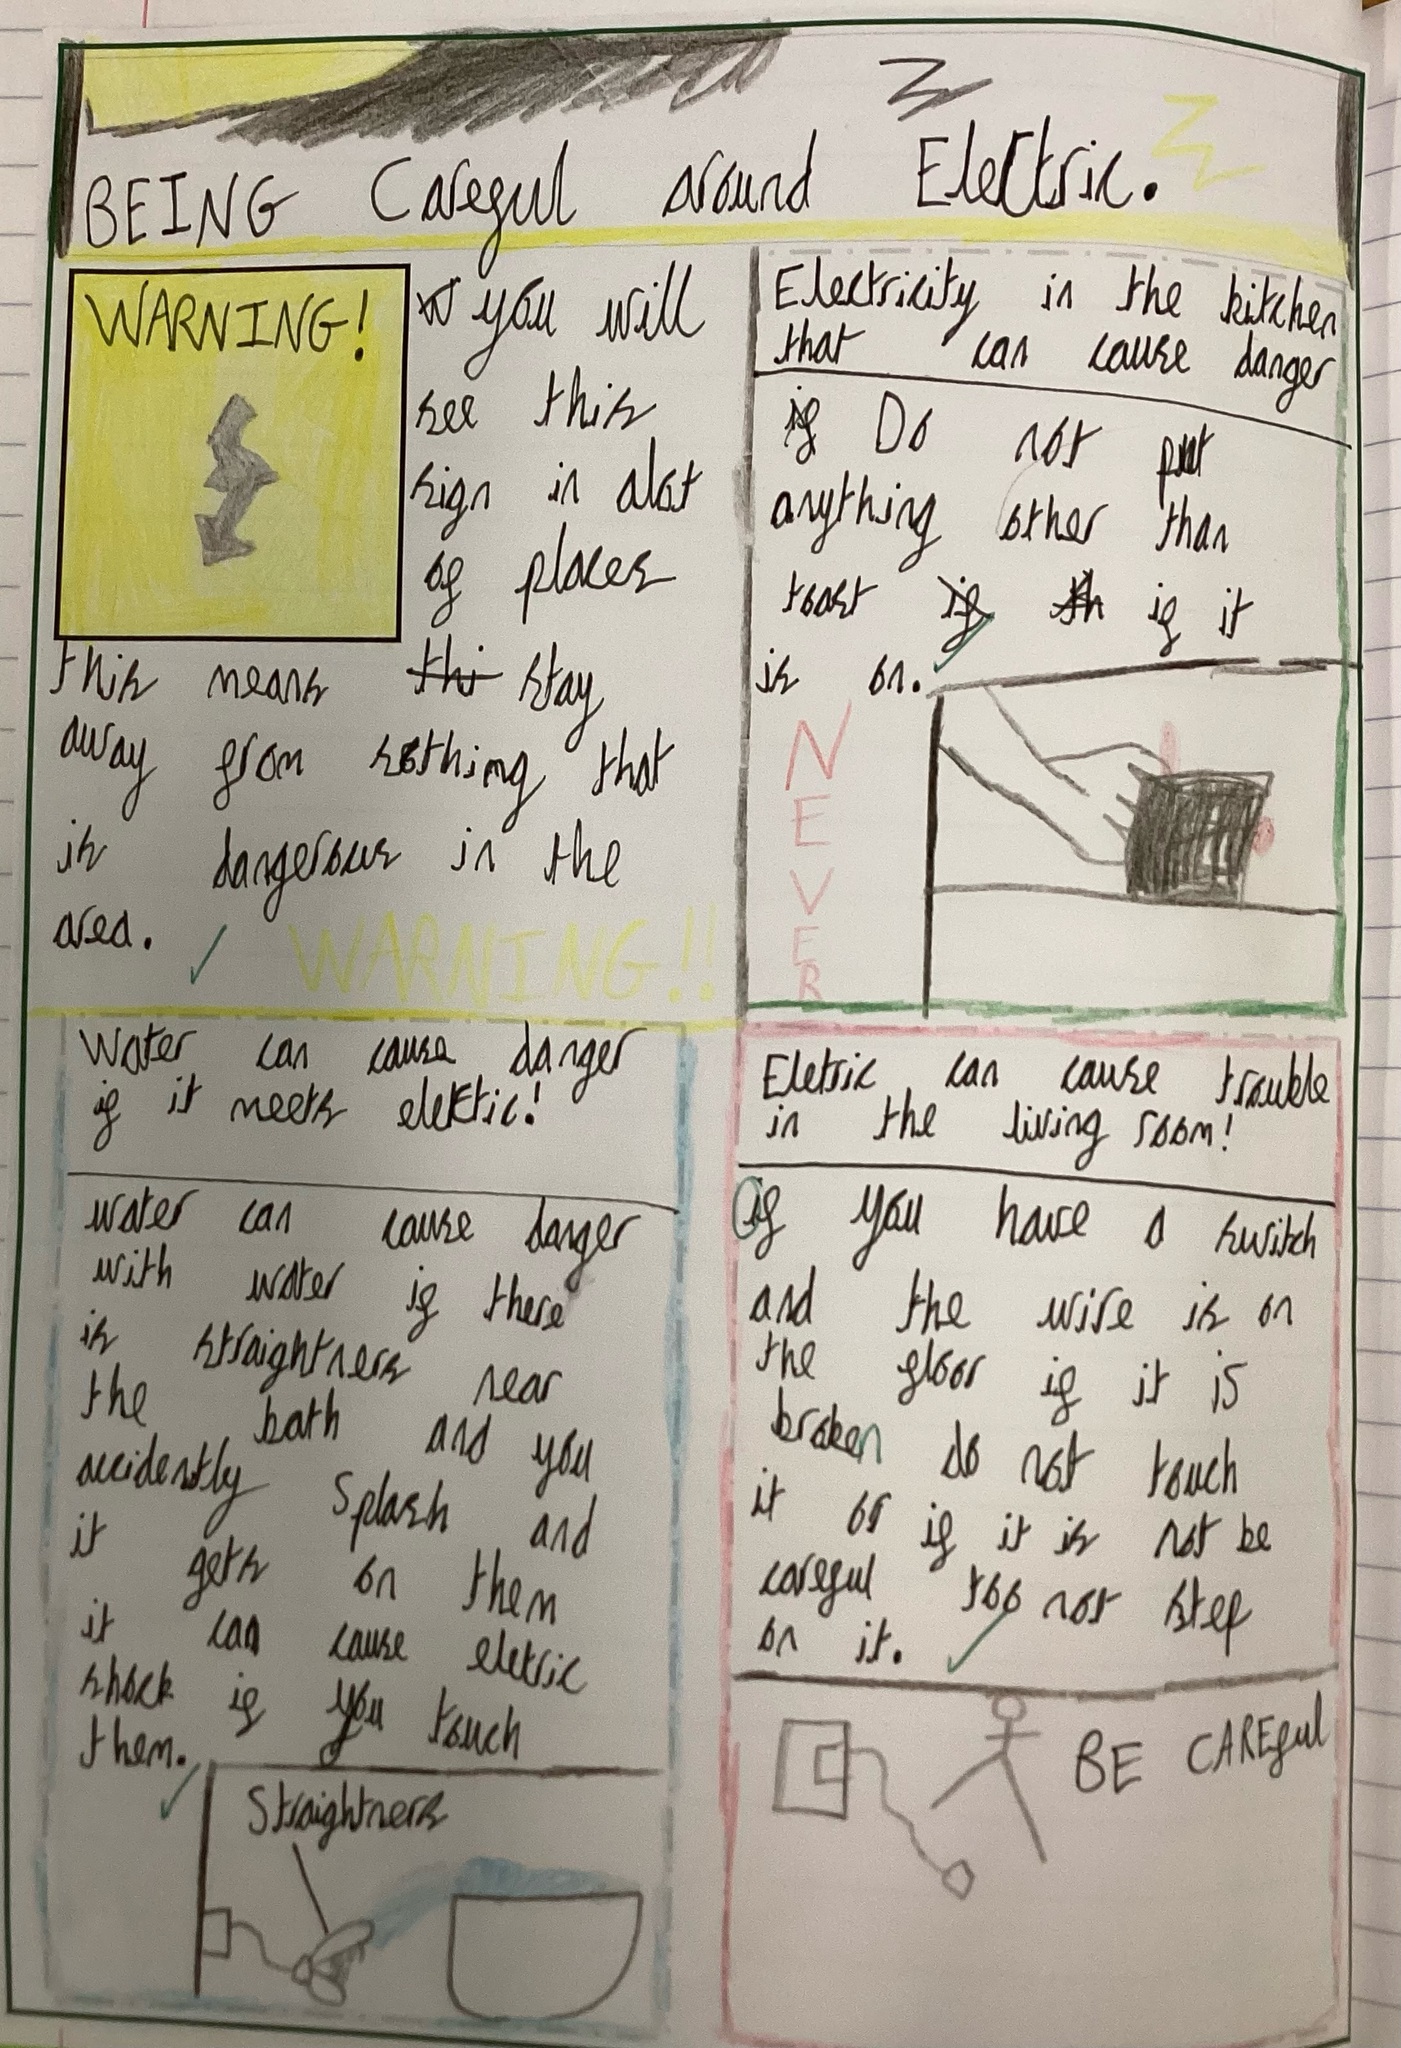 BEING Careful around Electric.
WARNING!
you will
see this
sign in alot
of places
this means thi stay
away from sothing that
is dangerous in the
area.
WARNING!!
Electricity in the kitchen
that can cause danger
if Do not put
anything other than
toast if th if it
is on.
NEVER
Water can cause danger
if it meets elektic!
water can cause danger
with water if there
is straightners near
the bath and you
accidently Splash and
it gets on them
it can cause eletric
shock if you touch
them.
Straightners
Eletric can cause trouble
in the living room!
if you have a switch
and the wire is on
the floor if it is
broken do not touch
it or if it is not be
careful too not step
on it.
BE CAREful